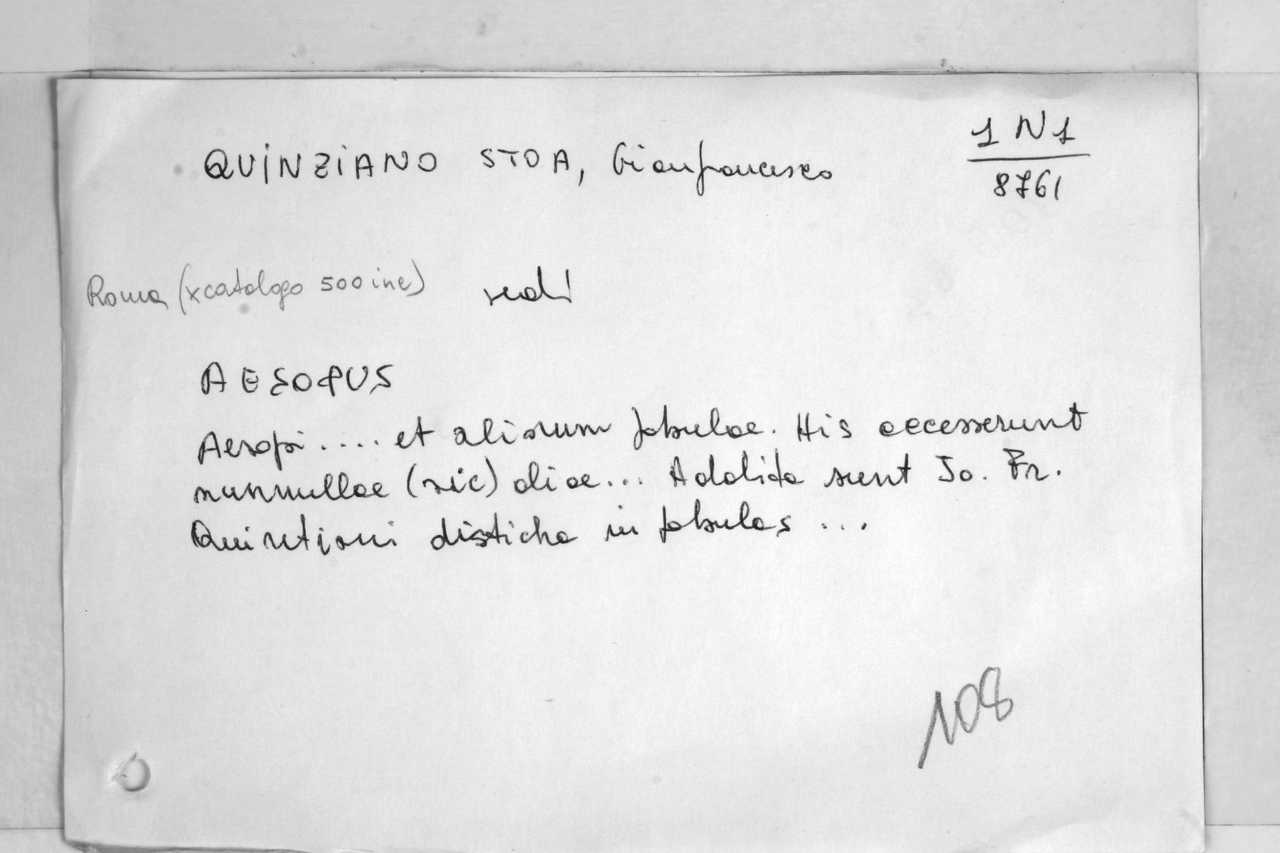 QUINZIANO STOA, Gianfrancesco
1 N 1
8761
Roma (x catalogo 500ine) vedi
AESOPUS
Aesopi .... et aliorum fabulae. His accesserunt
nunnullae (sic) aliae... Addita sunt Jo. Fr.
Quintiani disticha in fabulas ...
108